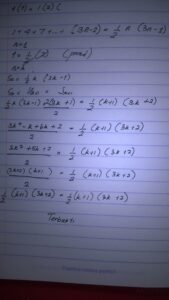 1 + 4 + 7 + ... + (3n-2) = 1/2 n (3n-1)
n=1
1 = 1/2 (2)
n=k
Sn = 1/2 k (3k-1)
1/2 k (3k-1) = 1/2 (k+1) (3k+2)
3k² - k + 6k + 2 / 2 = 1/2 (k+1) (3k+2)
3k² + 5k + 2 / 2 = 1/2 (k+1) (3k+2)
(3k+2) (k+1) / 2 = 1/2 (k+1) (3k+2)
1/2 (k+1) (3k+2) = 1/2 (k+1) (3k+2)
Terbukti